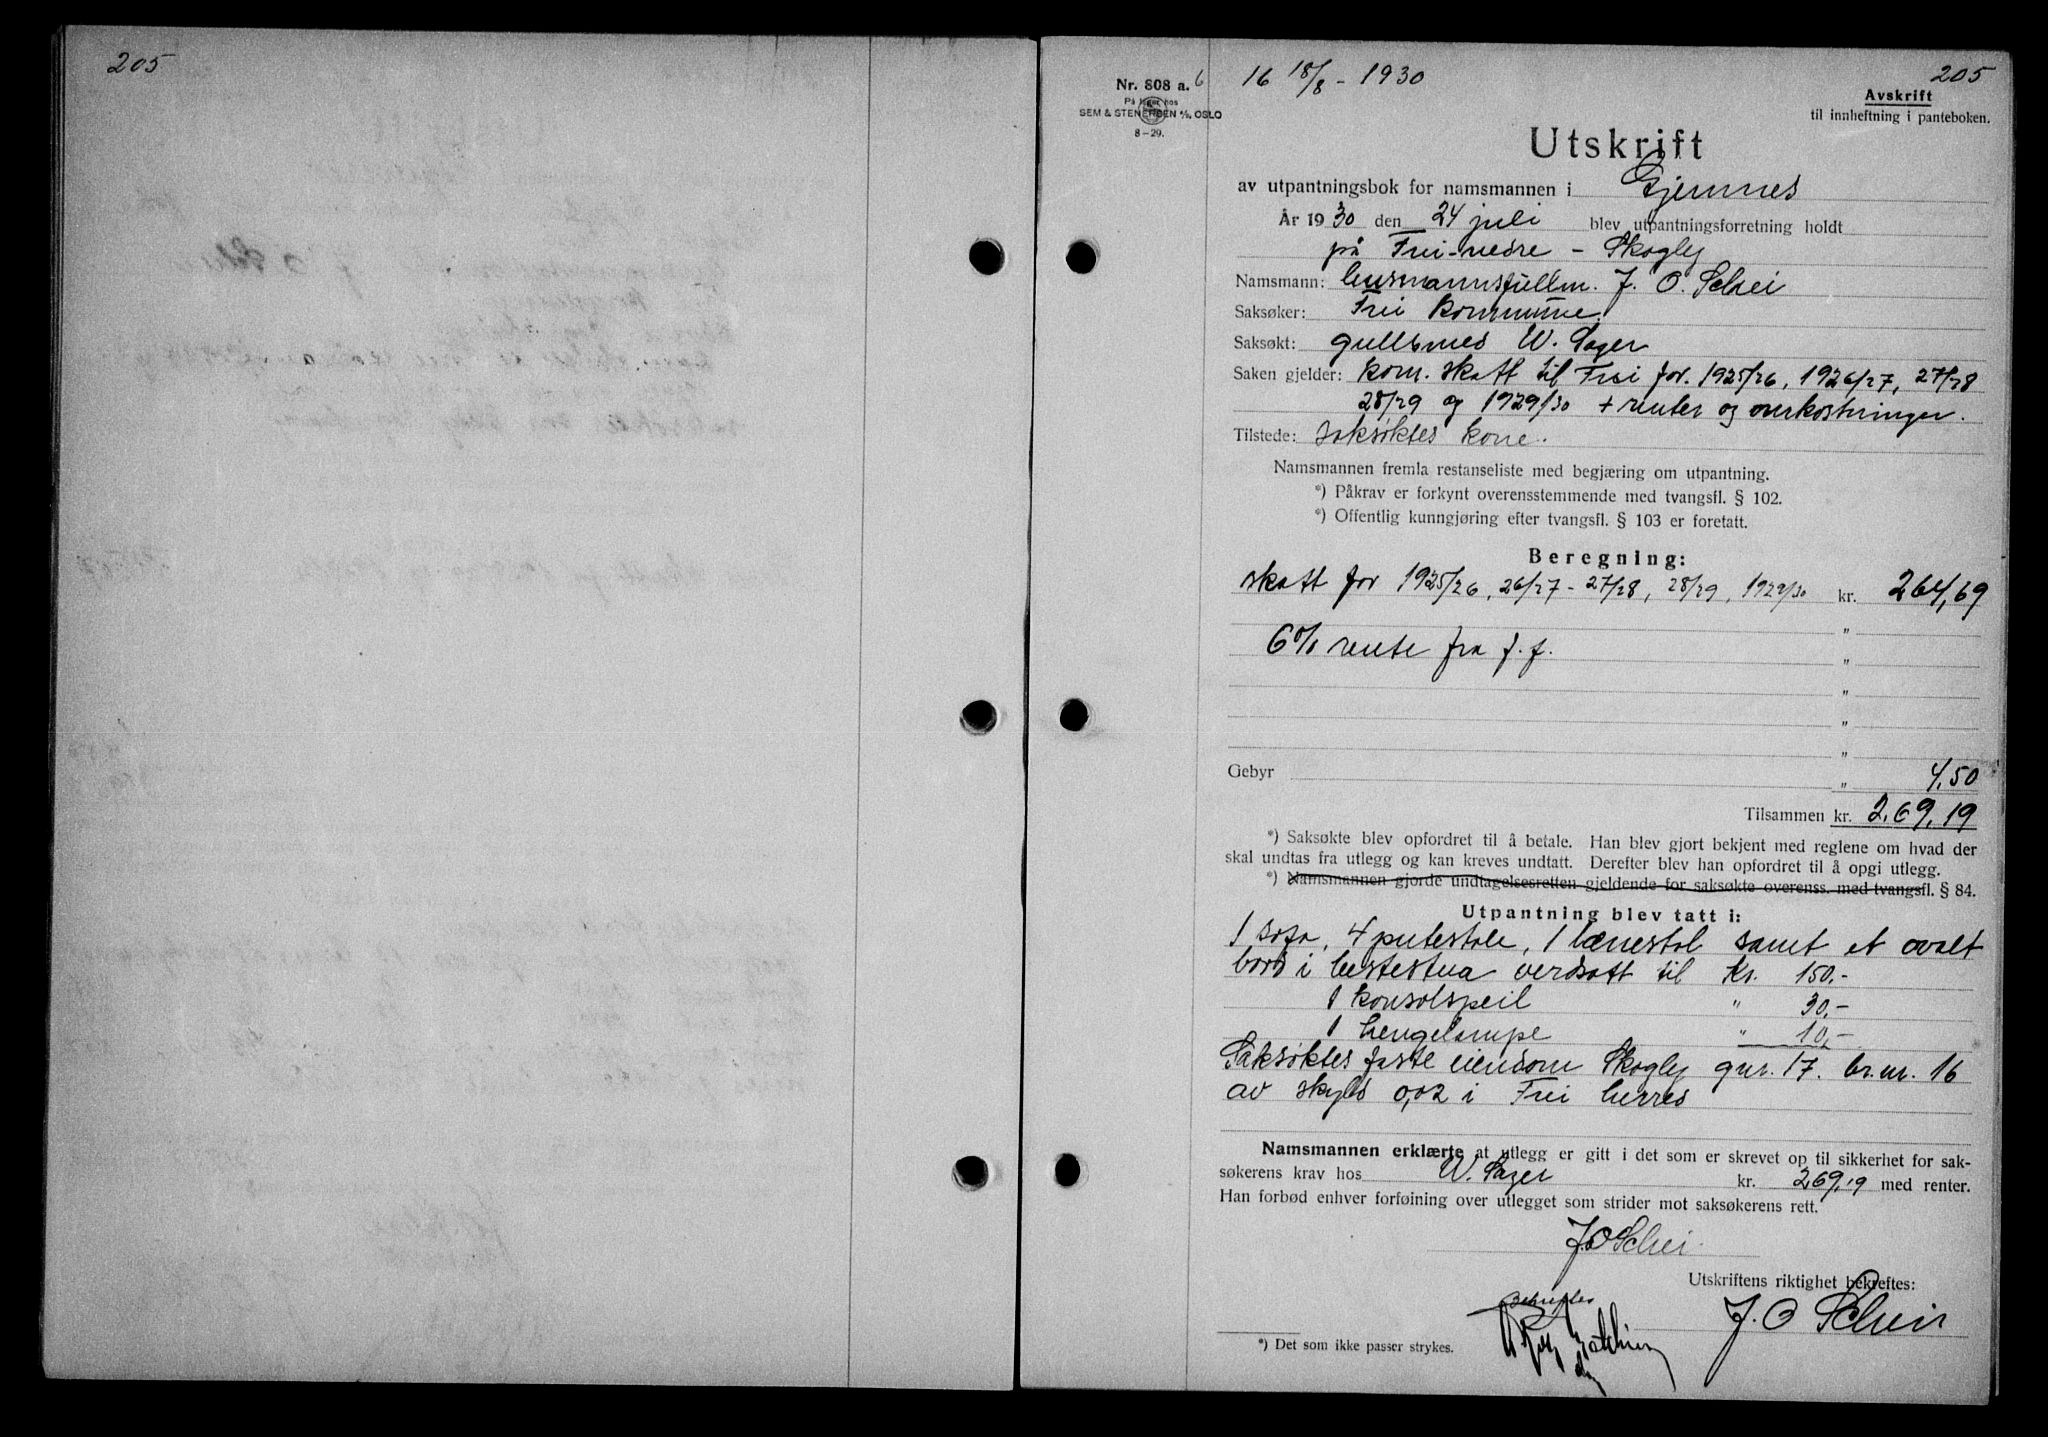 205
Nr. 808 a.
På lager hos
SEM & STENERSEN A/S, OSLO
8-29.
16 18/8 - 1930
205
Avskrift
til innheftning i panteboken.
Utskrift
av utpantningsbok for namsmannen i Gjemnes
År 1930 den 24 juli blev utpantningsforretning holdt
på Frei-nedre - Skogly
Namsmann: lensmannsfullm. J. O. Schei
Saksøker: Frei kommune.
Saksøkt: gullsmed W. Sager
Saken gjelder: kom. skatt til Frei for 1925/26, 1926/27, 27/28
28/29 og 1929/30 + renter og omkostninger.
Tilstede: saksøktes kone.
Namsmannen fremla restanseliste med begjæring om utpantning.
*) Påkrav er forkynt overensstemmende med tvangsfl. § 102.
*) Offentlig kunngjøring efter tvangsfl. § 103 er foretatt.
Beregning:
skatt for 1925/26, 26/27 - 27/28, 28/29, 1929/30 kr. 264,69
"
6% rente fra f. f. "
"
"
"
Gebyr " 4,50
Tilsammen kr. 269,19
*) Saksøkte blev opfordret til å betale. Han blev gjort bekjent med reglene om hvad der
skal undtas fra utlegg og kan kreves undtatt. Derefter blev han opfordret til å opgi utlegg.
*) Namsmannen gjorde undtagelsesretten gjeldende for saksøkte overenss. med tvangsfl. § 84.
Utpantning blev tatt i:
1 sofa, 4 putestole, 1 lænestol samt et ovalt
bord i bestestua verdsatt til Kr. 150.-
1 konsolspeil " 30,-
1 hengelampe " 10,-
Saksøktes faste eiendom Skogly gnr. 17. br.nr. 16
av skyld 0,02 i Frei herred
Namsmannen erklærte at utlegg er gitt i det som er skrevet op til sikkerhet for sak-
søkerens krav hos W. Sager kr. 269,19 med renter.
Han forbød enhver forføining over utlegget som strider mot saksøkerens rett.
J. O. Schei.
Utskriftens riktighet bekreftes:
Bekreftes
J. O. Schei
*) Det som ikke passer strykes.